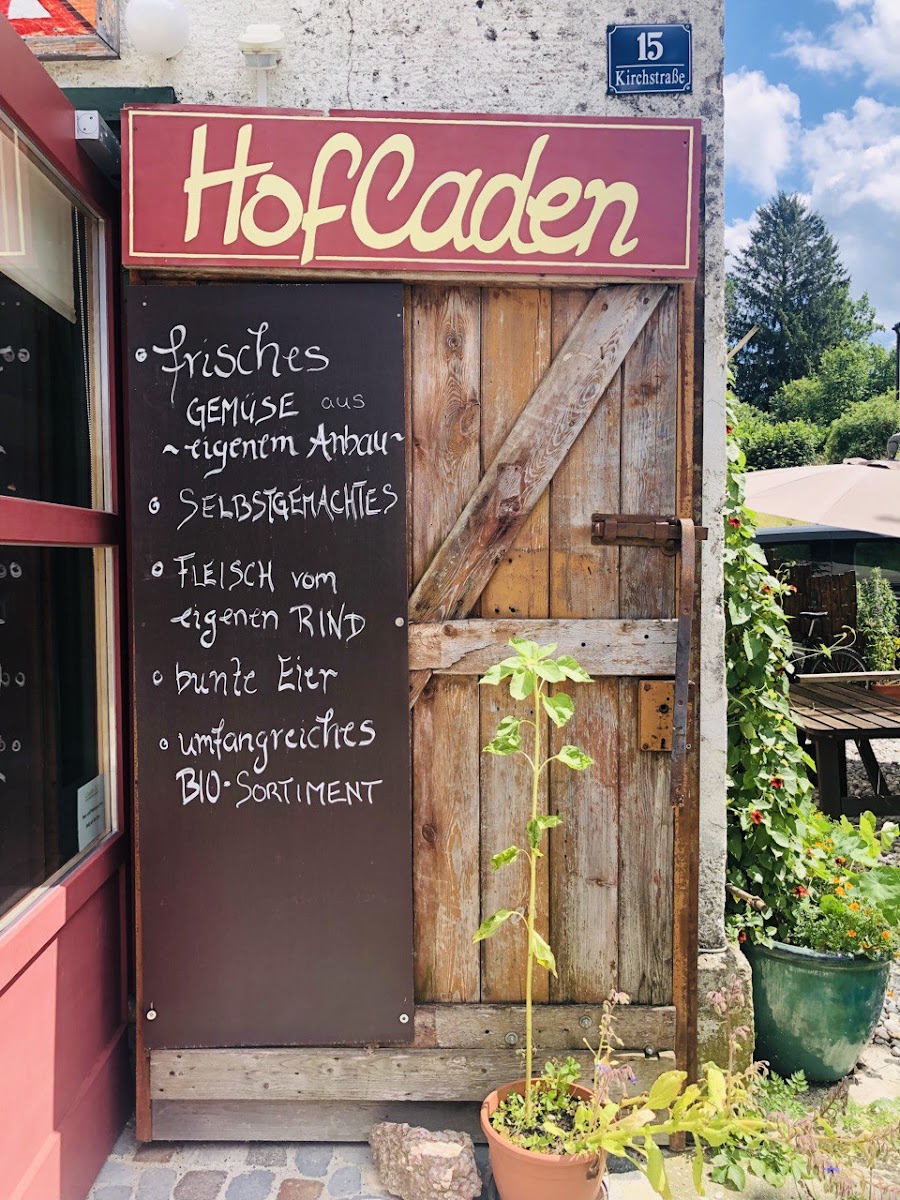 15
Kirchstraße
HofLaden
frisches
GEMÜSE aus
~eigenem Anbau~
SELBSTGEMACHTES
FLEISCH vom
eigenen RIND
bunte Eier
umfangreiches
BIO-SORTIMENT